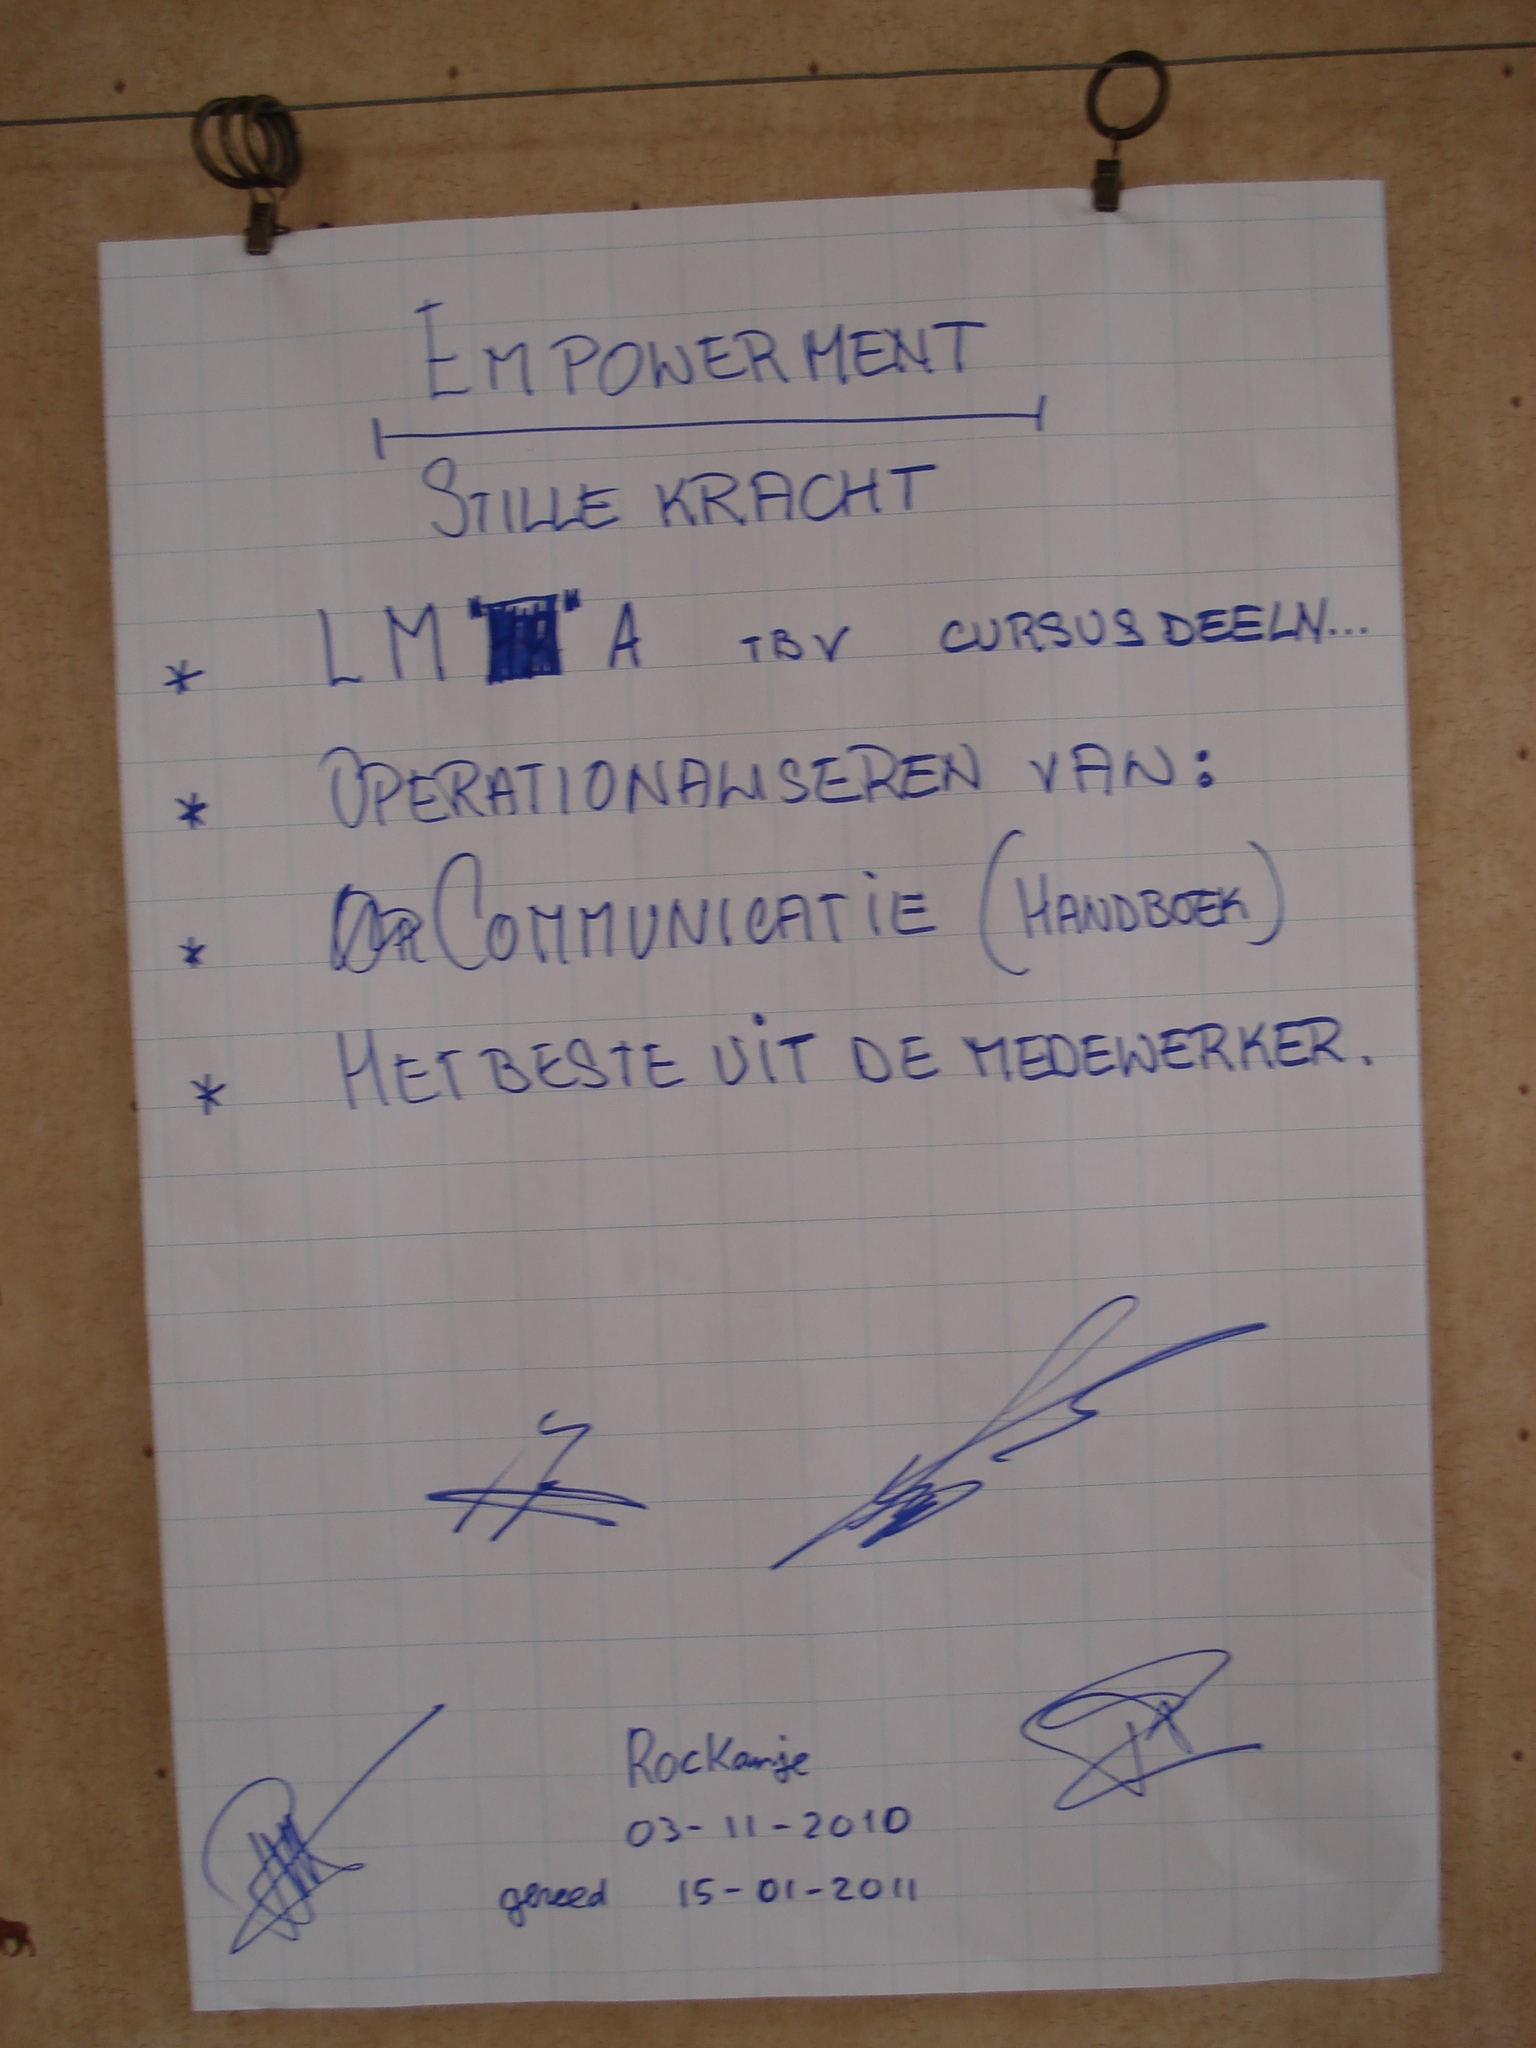 EMPOWERMENT
STILLE KRACHT
* LM " " A TBV CURSUSDEELN...
* OPERATIONALISEREN VAN:
* COMMUNICATIE (HANDBOEK)
* HET BESTE UIT DE MEDEWERKER.
Rockanje
03-11-2010
gereed 15-01-2011